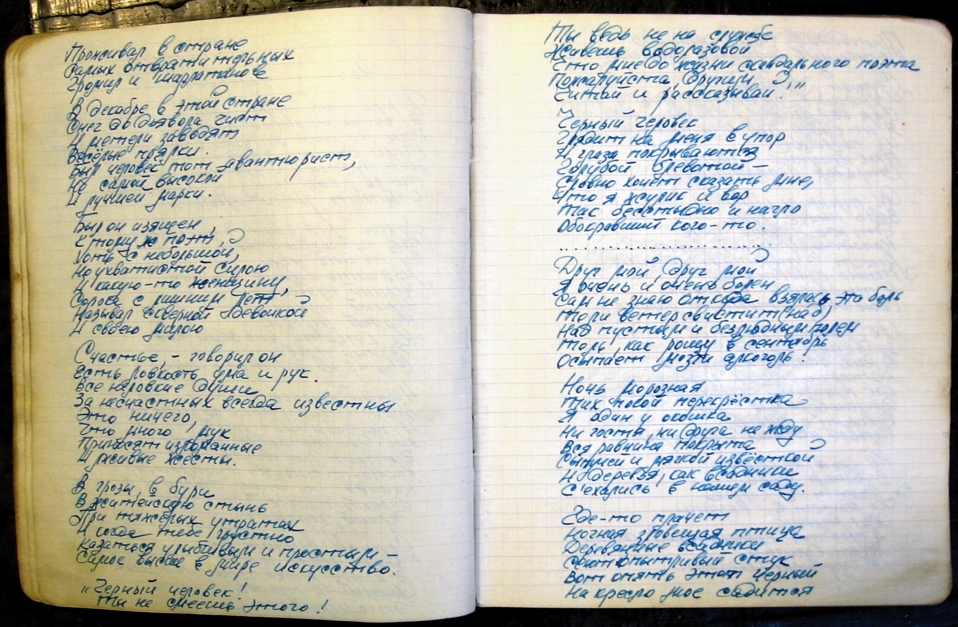 Проживал в стране
Самых отвратительных
Громил и шарлатанов
В декабре в этой стране
Снег до дьявола чист
И метели заводят
Весёлые прялки.
Был человек тот авантюрист,
Но самой высокой
И лучшей марки.
Был он изящен,
К тому ж поэт,
Хоть с небольшой,
Но ухватистой силою
И какую-то женщину,
Сорока с лишним лет
Называл скверной девочкой
И своею милою
Счастье, - говорил он
Есть ловкость ума и рук.
Все неловкие души
За несчастных всегда известны
Это ничего,
Что много мук
Приносят изломанные
И лживые жесты.
В грозы, в бури
В житейскую стынь
При тяжёлых утратах
И когда тебе грустно
Казаться улыбчивым и простым -
Самое высшее в мире искусство.
"Черный человек!
Ты не смеешь этого!
Ты ведь не на службе
Живёшь водолазовой
Что мне до жизни скандального поэта
Пожалуйста, другим
Читай и рассказывай."
Черный человек
Глядит на меня в упор
И глаза покрываются
Голубой блевотой -
Словно хочет сказать мне,
Что я жулик и вор
Так бесстыдно и нагло
Обокравший кого-то.
Друг мой, друг мой
Я очень и очень болен
Сам не знаю откуда взялась эта боль
То ли ветер свистит (над)
Над пустым и безлюдным полем
Толь, как рощу в сентябрь
Осыпает мозги алкоголь.
Ночь морозная
Тих покой перекрёстка
Я один у окошка
Ни гостя, ни друга не жду
Вся равнина покрыта
Сыпучей и мягкой извёсткой
И деревья, как всадники
Съехались в нашем саду.
Где-то плачет
Ночная зловещая птица
Деревянные всадники
Сеют копытливый стук
Вот опять этот чёрный
На кресло мое садится